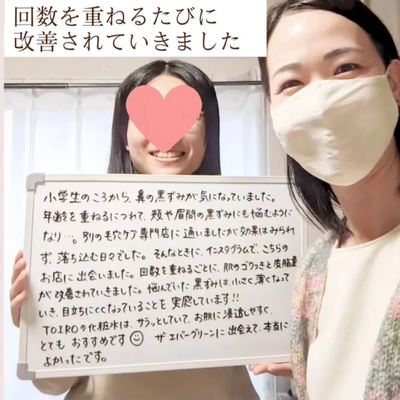 回数を重ねるたびに
改善されていきました
小学生のころから、鼻の黒ずみが気になっていました。
年齢を重ねるにつれて、頬や眉間の黒ずみにも悩むように
なり…。別の毛穴ケア専門店に通いましたが効果はみられ
ず、落ち込む日々でした。そんなときに、インスタグラムで、こちらの
お店に出会いました。回数を重ねるごとに、肌のゴワつきと皮脂量
が改善されていきました。悩んでいた黒ずみは、小さく薄くなって
いき、目立ちにくくなっていることを実感しています!!
TOIROの化粧水は、サラッとしていて、お肌に浸透しやすく、
とてもおすすめです☺ ザ エバーグリーンに出会えて、本当に
よかったです。